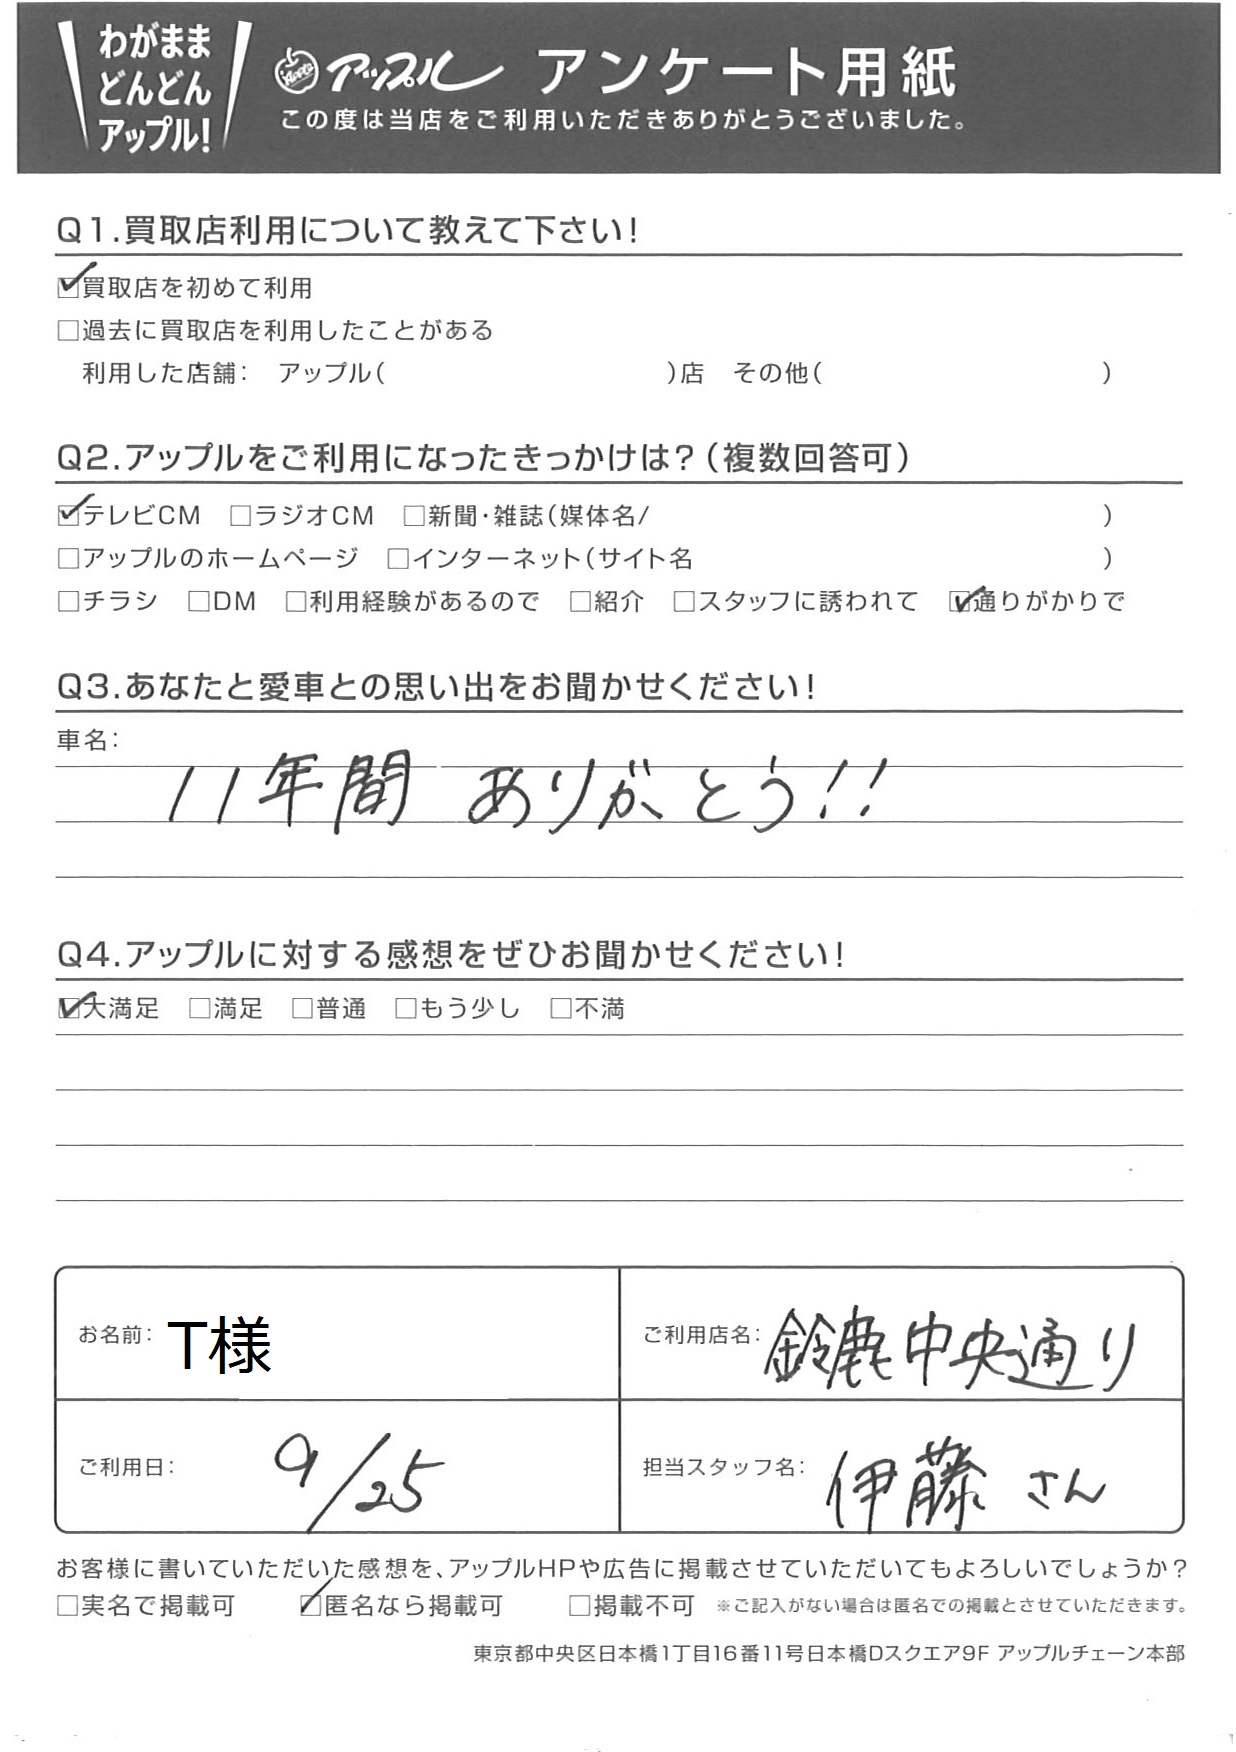 わがまま
どんどん
アップル!
Apple アップル アンケート用紙
この度は当店をご利用いただきありがとうございました。
Q1.買取店利用について教えて下さい!
☑買取店を初めて利用
□過去に買取店を利用したことがある
利用した店舗: アップル( )店 その他( )
Q2.アップルをご利用になったきっかけは?(複数回答可)
☑テレビCM □ラジオCM □新聞・雑誌(媒体名/ )
□アップルのホームページ □インターネット(サイト名 )
□チラシ □DM □利用経験があるので □紹介 □スタッフに誘われて ☑通りがかりで
Q3.あなたと愛車との思い出をお聞かせください!
車名:
11年間 ありがとう!!
Q4.アップルに対する感想をぜひお聞かせください!
☑大満足 □満足 □普通 □もう少し □不満
お名前: T様
ご利用店名: 鈴鹿中央通り
ご利用日: 9/25
担当スタッフ名: 伊藤 さん
お客様に書いていただいた感想を、アップルHPや広告に掲載させていただいてもよろしいでしょうか?
□実名で掲載可 ☑匿名なら掲載可 □掲載不可 ※ご記入がない場合は匿名での掲載とさせていただきます。
東京都中央区日本橋1丁目16番11号日本橋Dスクエア9F アップルチェーン本部